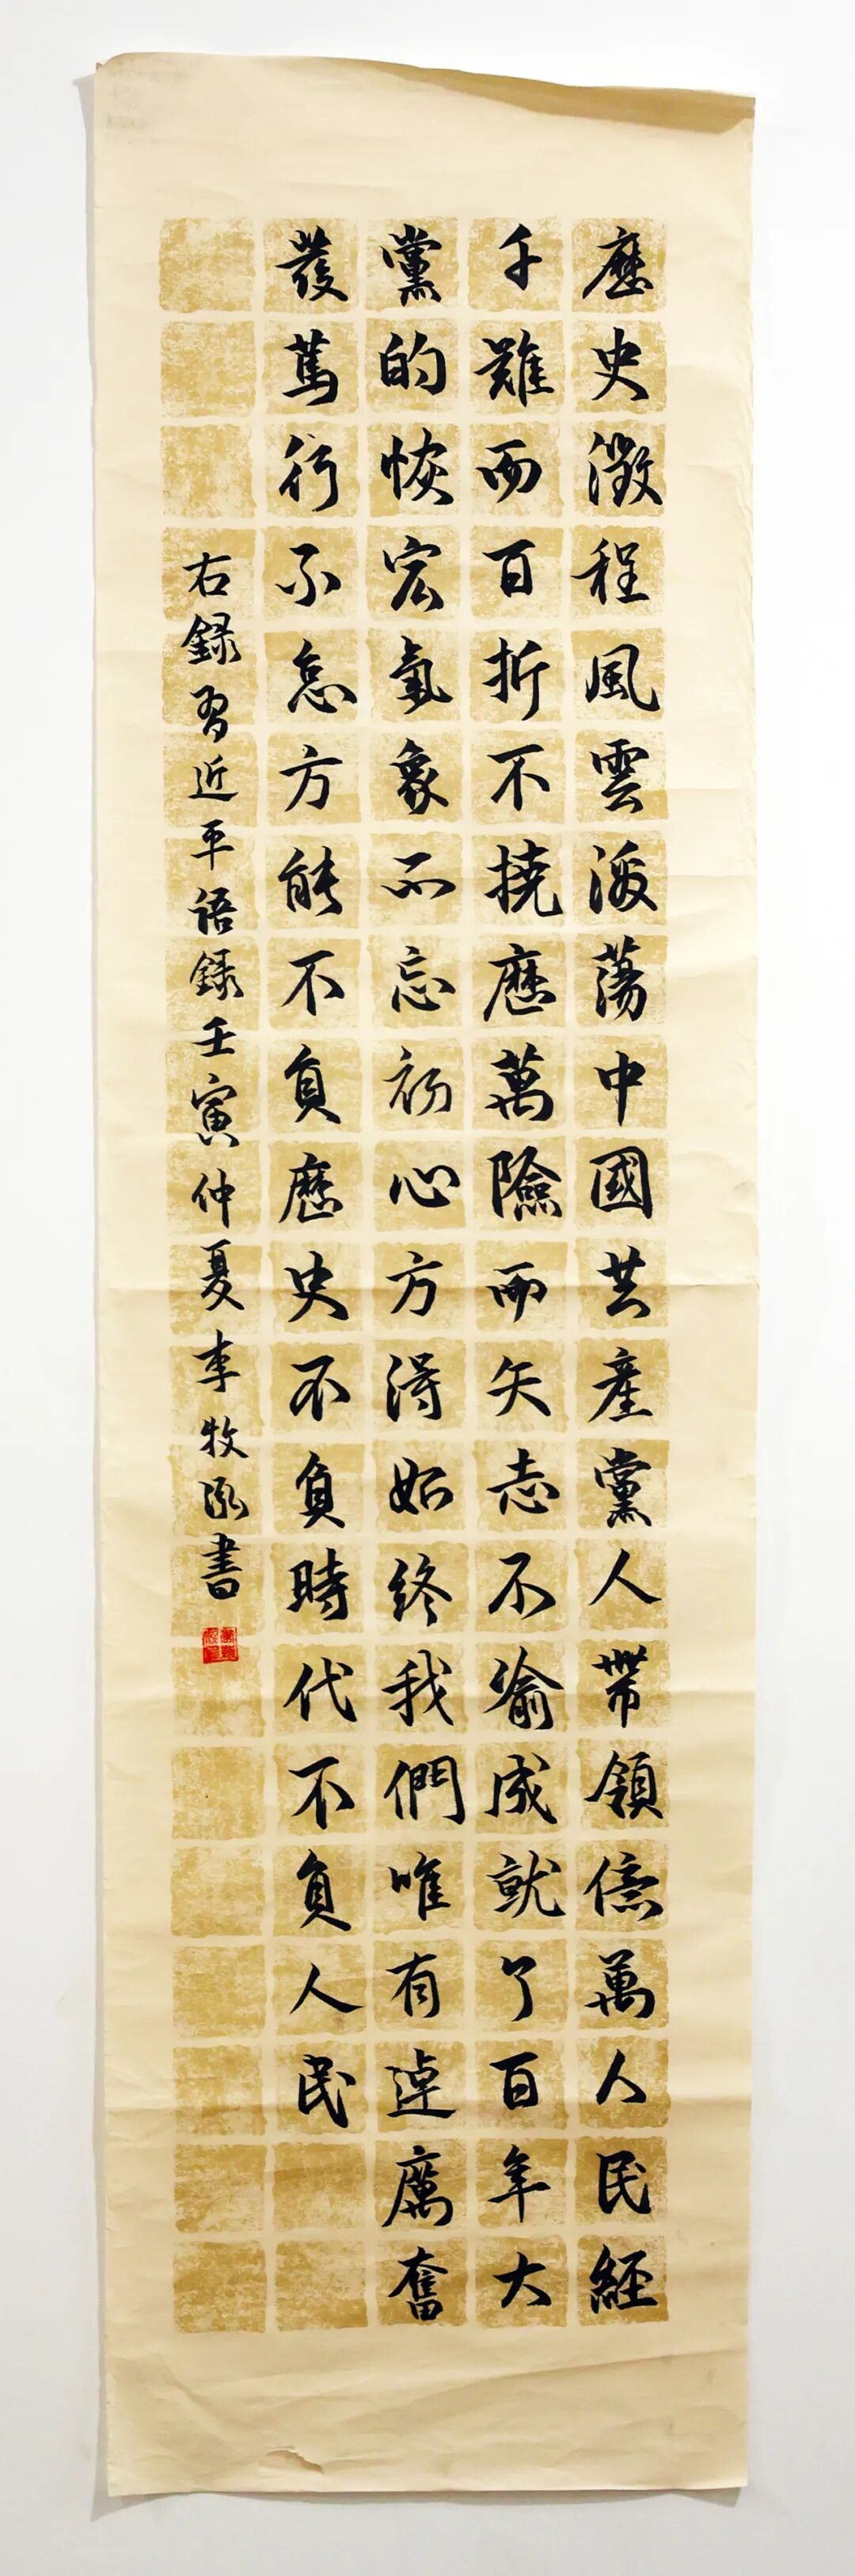 歷史徵程風雲激蕩中國共產黨人帶領億萬人民經
千難而百折不撓歷萬險而矢志不渝成就了百年大
黨的恢宏氣象不忘初心方得始終我們唯有逴厲奮
發篤行不怠方能不負歷史不負時代不負人民
右錄習近平語錄壬寅仲夏李牧泓書